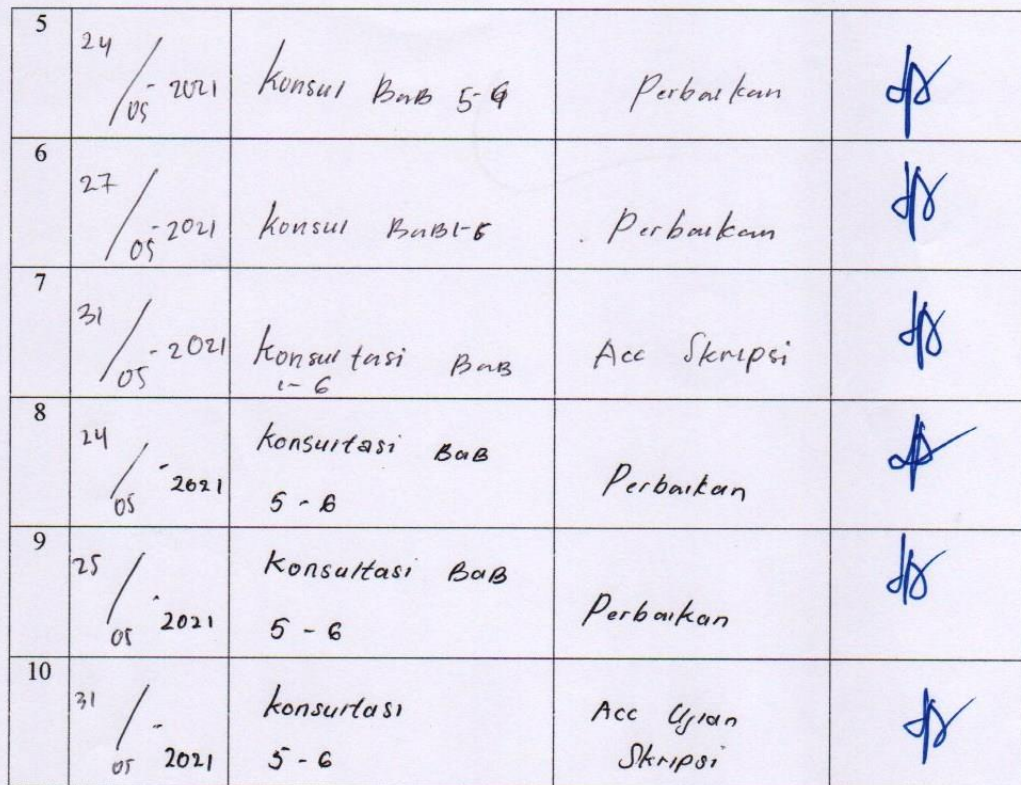 5
24/05-2021 Konsul BaB 5-6 Perbaikan
6
27/05-2021 Konsul BaB1-6 Perbaikan
7
31/05-2021 Konsultasi BaB Acc Skripsi
1-6
8
24/05-2021 Konsultasi BaB
5-6 Perbaikan
9
25/05-2021 Konsultasi BaB
5-6 Perbaikan
10
31/05-2021 Konsultasi Acc Ujian
5-6 Skripsi